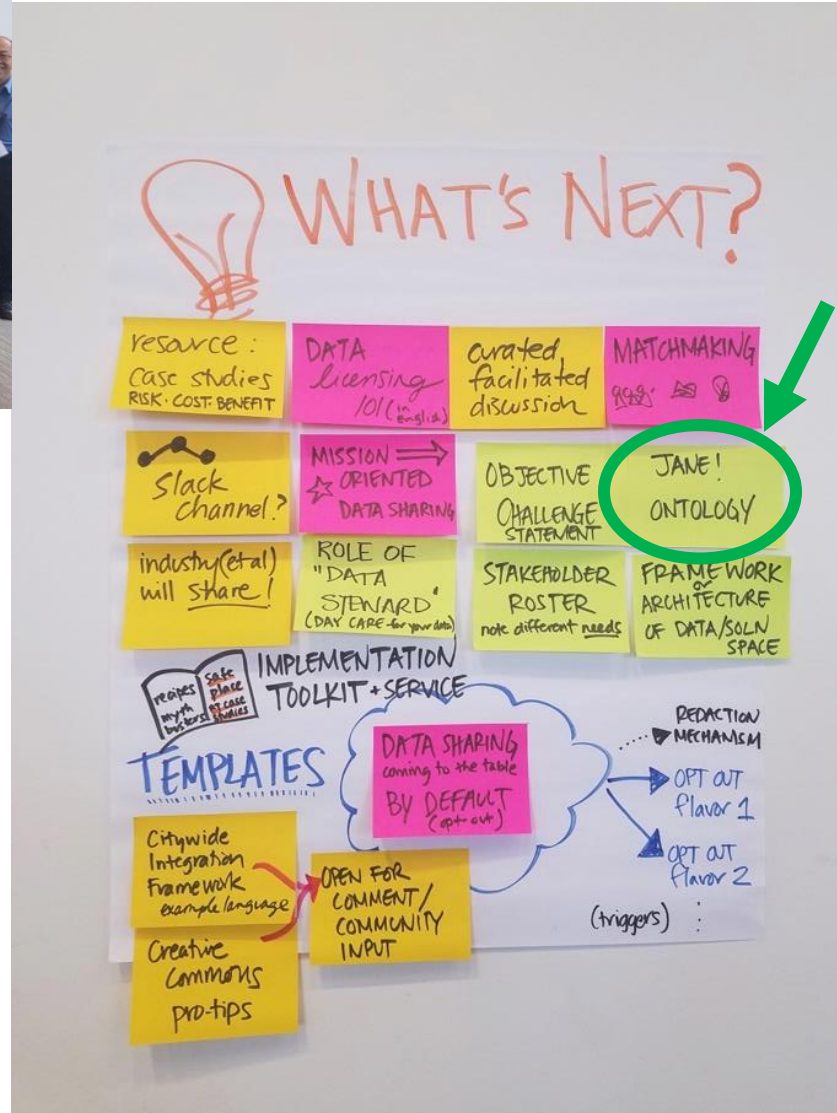 WHAT'S NEXT?
resource:
case studies
RISK · COST · BENEFIT
DATA
licensing
101 (in english)
curated,
facilitated
discussion
MATCHMAKING
Slack
channel?
MISSION
ORIENTED
DATA SHARING
OBJECTIVE
CHALLENGE
STATEMENT
JANE!
ONTOLOGY
industry (et al)
will share!
ROLE OF
"DATA
STEWARD"
(DAY CARE for your data)
STAKEHOLDER
ROSTER
note different needs
FRAMEWORK
or
ARCHITECTURE
OF DATA/SOLN
SPACE
recipes
myth
busters
safe
place
case
studies
IMPLEMENTATION
TOOLKIT + SERVICE
TEMPLATES
DATA SHARING
coming to the table
BY DEFAULT
(opt-out)
REDACTION
MECHANISM
OPT OUT
flavor 1
OPT OUT
flavor 2
(triggers)
Citywide
Integration
Framework
example language
OPEN FOR
COMMENT/
COMMUNITY
INPUT
Creative
Commons
pro-tips